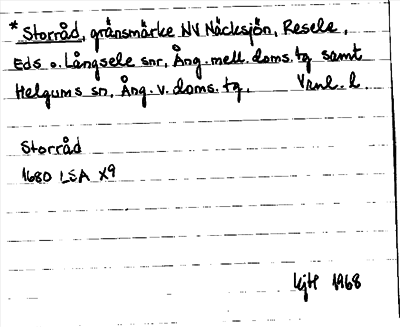 * Storråd, gränsmärke NV Näcksjön, Resele,
Eds o. Långsele snr, Ång. mell. doms. tg samt
Helgums sn, Ång. v. doms. tg.
Storråd
1680 LSA X9
1968